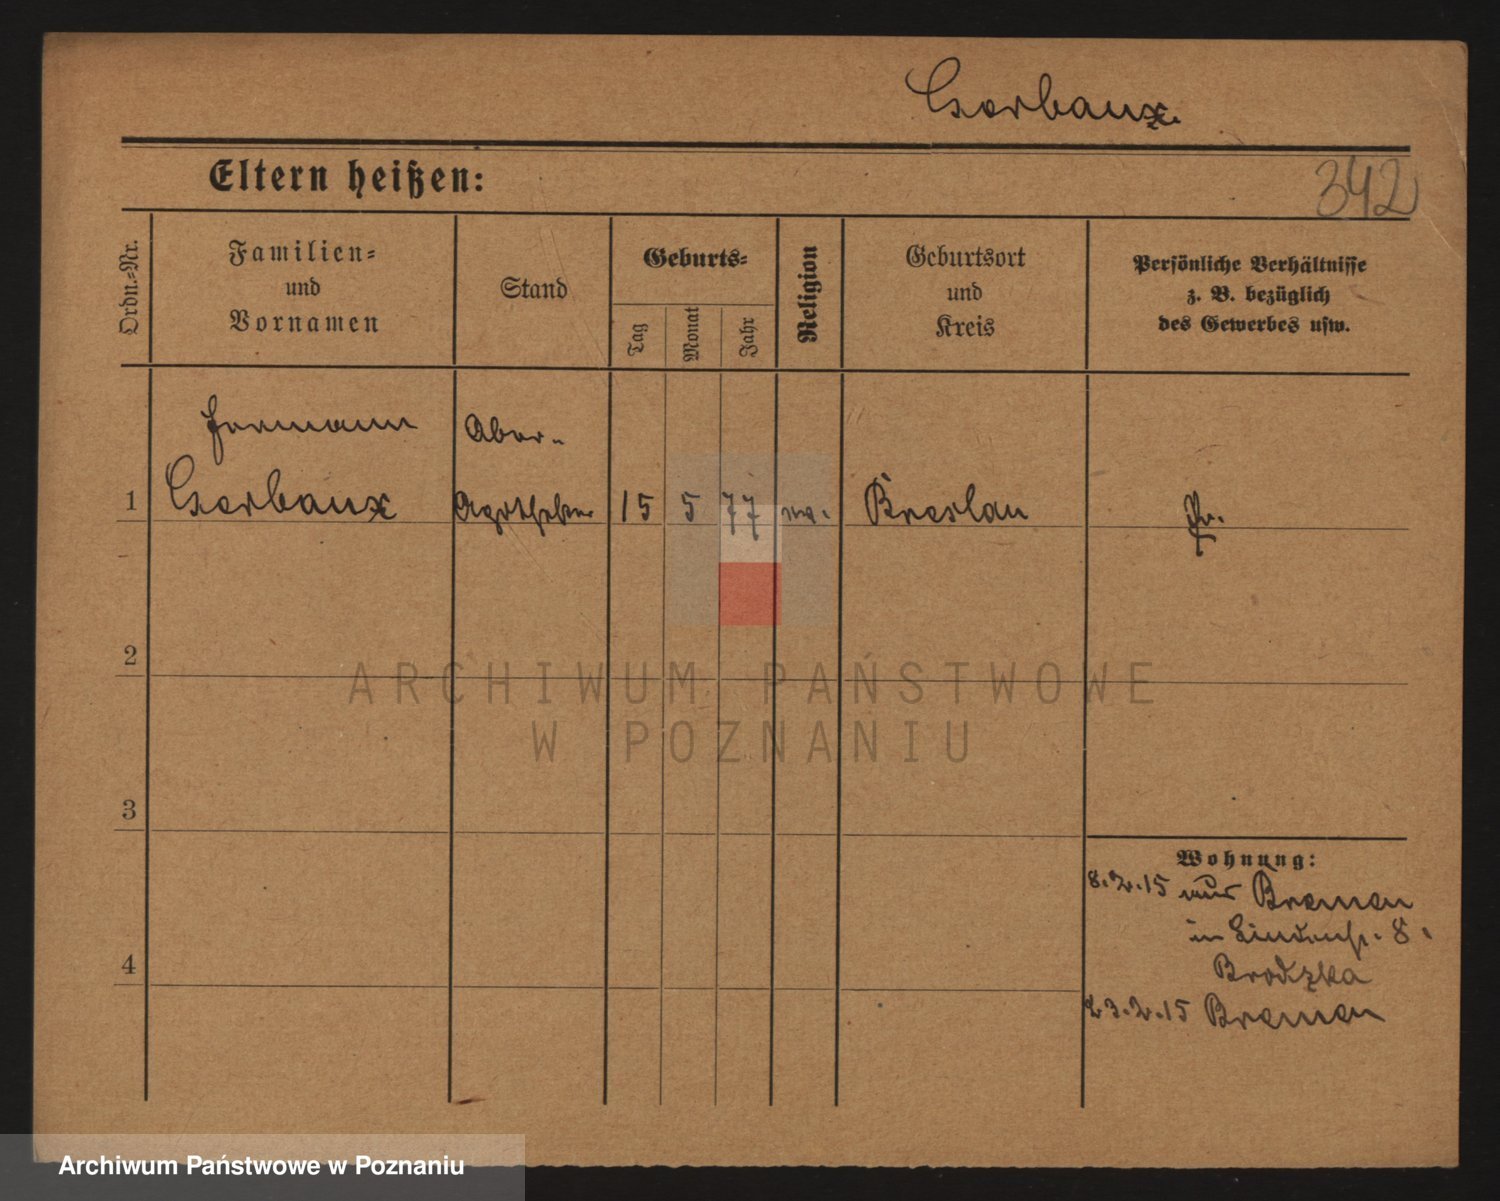 Gerbaux.
Eltern heißen:
342
Ordn.-Nr.
Familien-
und
Vornamen
Stand
Geburts-
Tag
Monat
Jahr
Religion
Geburtsort
und
Kreis
Persönliche Verhältnisse
z. B. bezüglich
des Gewerbes usw.
Hermann Ober-
1 Gerbaux Apotheker 15 5 77 ev. Breslau Pr.
2
3
Wohnung:
8.2.15 aus Bremen
in Lindenstr. 8.
4
Brodzka
23.2.15 Bremen
ARCHIWUM PAŃSTWOWE
W POZNANIU
Archiwum Państwowe w Poznaniu